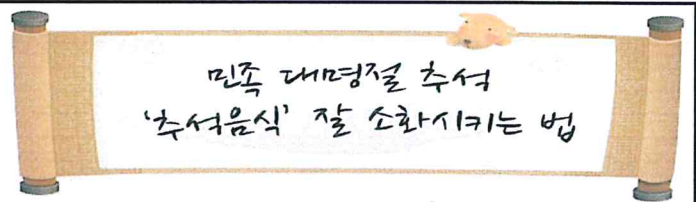 민족 대명절 추석
'추석음식' 잘 소화시키는 법